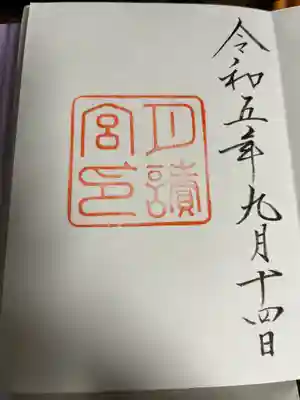 令和五年九月十四日
月讀
宮印